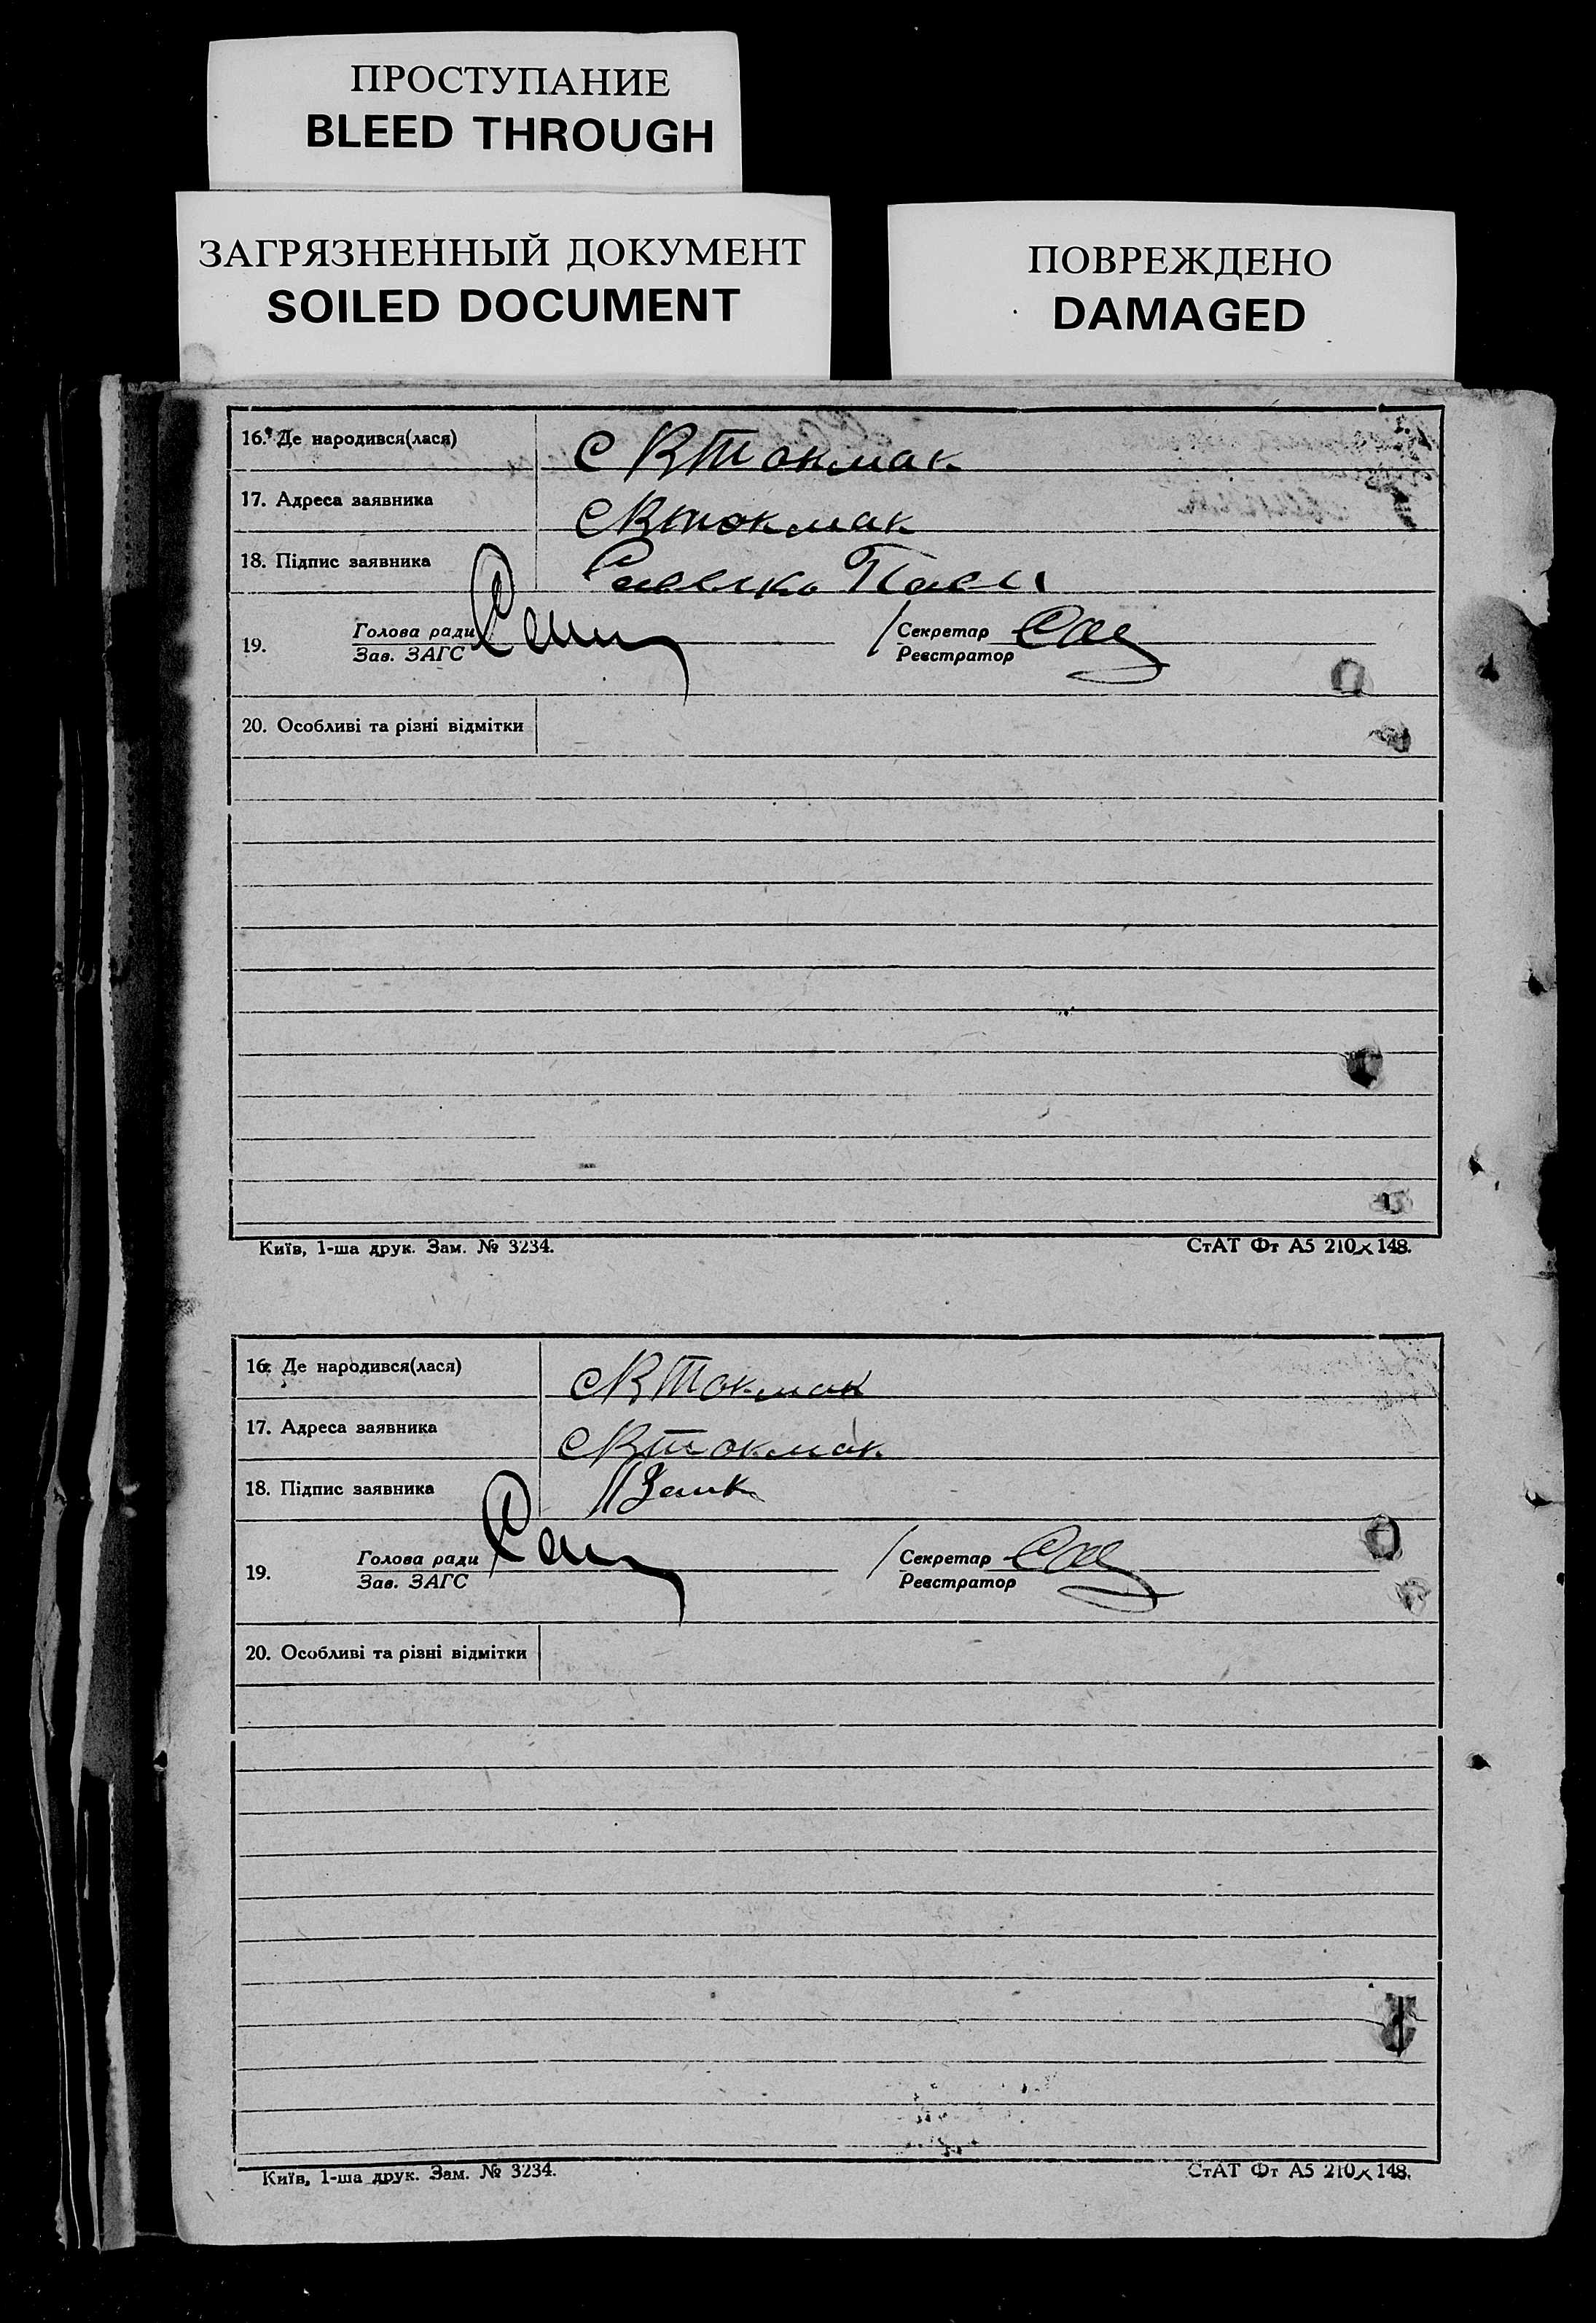 ПРОСТУПАНИЕ
BLEED THROUGH
ЗАГРЯЗНЕННЫЙ ДОКУМЕНТ
SOILED DOCUMENT
ПОВРЕЖДЕНО
DAMAGED
16. Де народився(лася) с ВТокмак
17. Адреса заявника с Втокмак
18. Підпис заявника
19. Голова ради Секретар
Зав. ЗАГС Реєстратор
20. Особливі та різні відмітки
Київ, 1-ша друк. Зам. № 3234. СтАТ Фт А5 210×148.
16. Де народився(лася) с ВТокмак
17. Адреса заявника с Втокмак
18. Підпис заявника
19. Голова ради Секретар
Зав. ЗАГС Реєстратор
20. Особливі та різні відмітки
Київ, 1-ша друк. Зам. № 3234. СтАТ Фт А5 210×148.